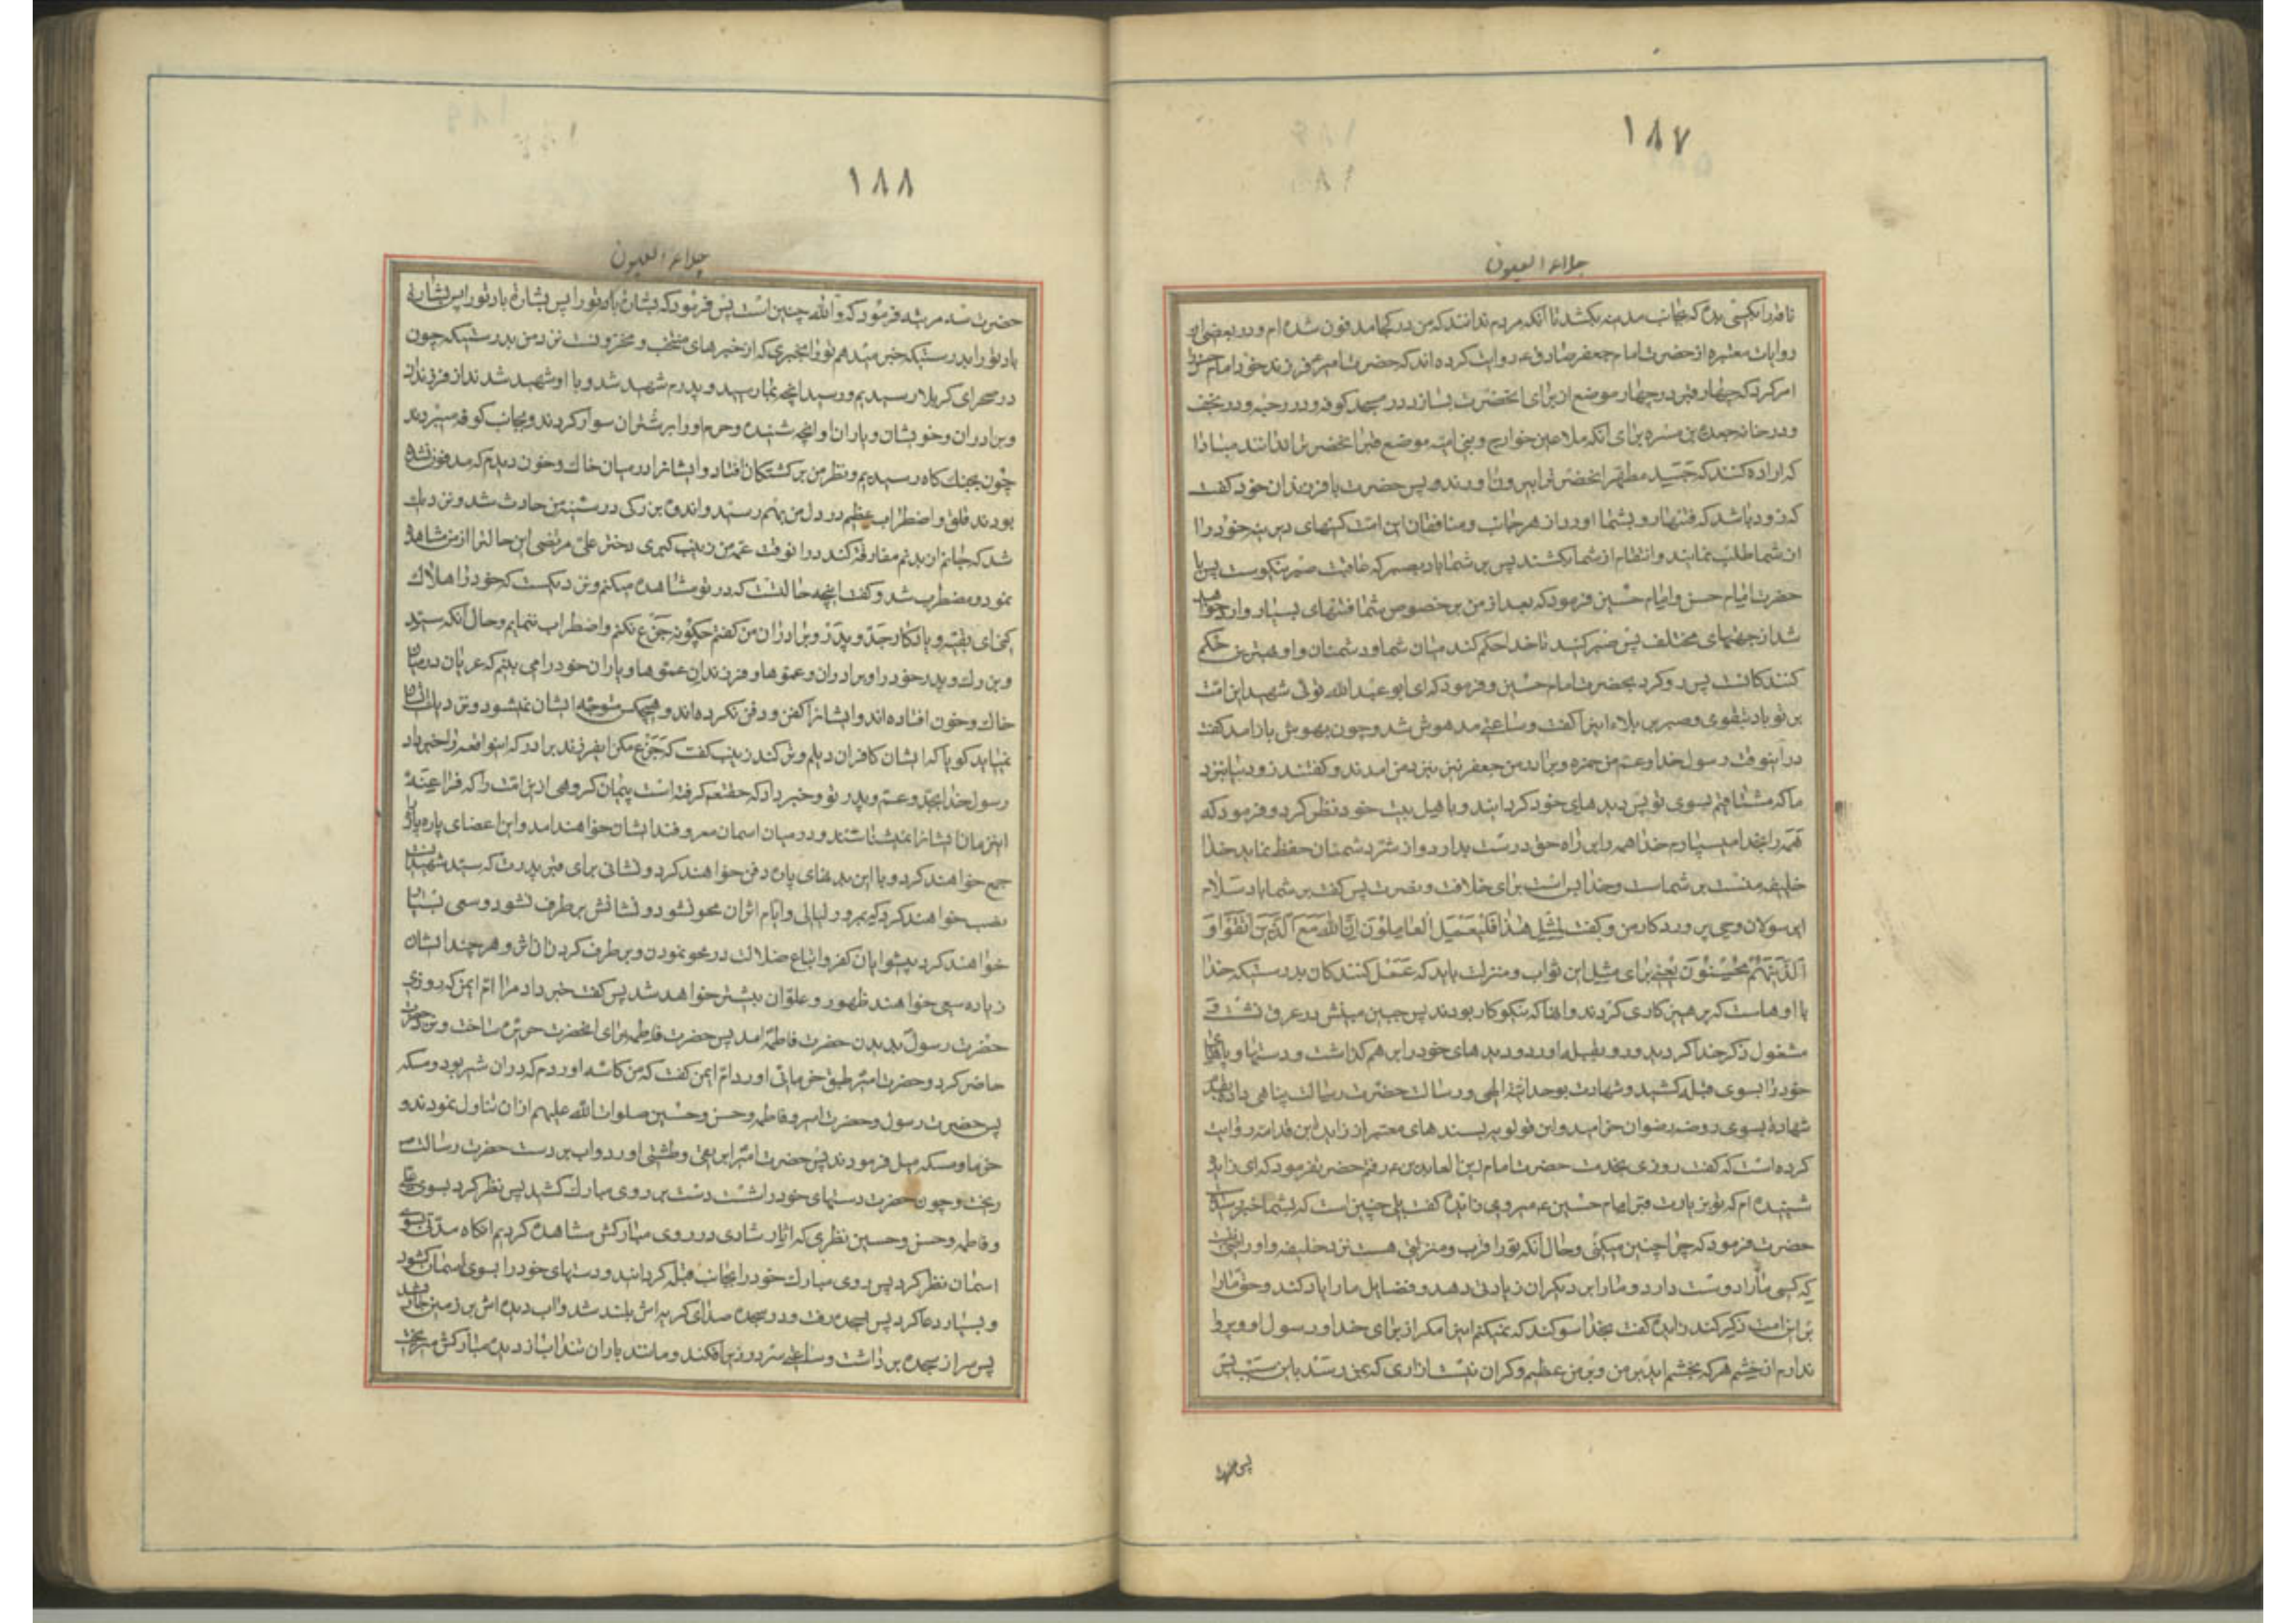 ۱۸۷
جلاء العیون
ناقه را بکسی بده که بجانب مدینه بکشد تا آنکه مردم ندانند که من در کجا مدفون شده ام و در بعضی از
روایات معتبره از حضرت امام جعفر صادق ع روایت کرده اند که حضرت امیر ع فرزند خود امام حسن را
امر کرد که چهار قبر در چهار موضع از برای آنحضرت بسازد در مسجد کوفه و در رحبه و در نجف
و در خانه جعده بن هبیره برای آنکه ملاعین خوارج و بنی امیه موضع قبر آنحضرت را ندانند مبادا
که اراده کنند که جسد مطهر آنحضرت را بیرون آورند و پس حضرت با فرزندان خود گفت
که زود باشد که فتنها رو بشما آورد از هر جانب و منافقان این امت کینهای دیرینه خود را
از شما طلب نمایند و انتقام از شما بکشند پس بر شما باد بصبر که عاقبت صبر نیکوست پس با
حضرت امام حسن و امام حسین فرمود که بعد از من بر خصوص شما فتنهای بسیار وارد خواهد
شد از جهتهای مختلف پس صبر کنید تا خدا حکم کند میان شما و دشمنان و او بهترین حکم
کنندگانست پس رو کرد بحضرت امام حسین و فرمود که ای ابو عبدالله توئی شهید این امت
بر تو باد بتقوی و صبر بر بلاء این را گفت و ساعتی مدهوش شد و چون بهوش باز آمد گفت
در اینوقت رسول خدا و عم من حمزه و برادر من جعفر نیز بنزد من آمدند و گفتند زود بیا بنزد
ما که مشتاقیم بسوی تو پس دیدهای خود گردانید و باهل بیت خود نظر کرد و فرمود که
همه را بخدا میسپارم خدا همه را براه حق درست بدارد و از شر دشمنان حفظ نماید خدا
خلیفه منست بر شما و خدا بس است برای خلافت و نصرت پس گفت بر شما باد سلام
ای رسولان وحی پروردگار من و گفت لِمِثْلِ هٰذَا فَلْيَعْمَلِ الْعَامِلُونَ إِنَّ اللَّهَ مَعَ الَّذِينَ اتَّقَوْا وَ
الَّذِينَ هُمْ مُحْسِنُونَ یعنی برای مثل این ثواب و منزلت باید که عمل کنند کنندگان بدرستیکه خدا
با اوهاست که پرهیزکاری کردند و آنها که نیکوکار بودند پس جبین مبینش در عرق نشست و
مشغول ذکر خدا گردید و رو بقبله آورد و دیدهای خود را بر هم گذاشت و دستها و پاهای
خود را بسوی قبله کشید و شهادت بوحدانیت الهی و رسالت حضرت رسالت پناهی داده
شهادة بسوی روضه رضوان خرامید و ابن قولویه بسندهای معتبر از زایده ابن قدامه روایت
کرده است که گفت روزی بخدمت حضرت امام زین العابدین ع رفتم حضرت فرمود که ای زایده
شنیده ام که تو بزیارت قبر امام حسین ع میروی زایده گفت بلی چنین است که بشما خبر رسیده
حضرت فرمود که چرا چنین میکنی و حال آنکه تو را قرب و منزلتی هست نزد خلیفه و او راضی نیست
که کسی ما را دوست دارد و ما را بر دیگران زیادتی دهد و فضایل ما را یاد کند و حق ما را
بر این امت ذکر کند زایده گفت بخدا سوگند که نمیکنم این را مگر از برای خدا و رسول او و پروا
ندارم از خشم هر که بخشم آید بر من و بر من عظیم و گران نیست آزاری که بمن رسد باین سبب پس
پس حضرت
۱۸۸
جلاء العیون
حضرت سه مرتبه فرمود که والله چنین است پس فرمود که بشارة باد تو را پس بشارة باد تو را پس بشارتی
باد تو را بدرستیکه خبر میدهم تو را بخبری که از خبرهای منتخب و مخزونست نزد من بدرستیکه چون
در صحرای کربلا رسیدیم و رسید آنچه بما رسید و پدرم شهید شد و با او شهید شدند از فرزندان
و برادران و خویشان و یاران او آنچه شنیده و حرم او را بر شتران سوار کردند و بجانب کوفه میبردند
چون بجنگ گاه رسیدیم و نظر من بر کشتگان افتاد و ایشانرا در میان خاک و خون دیدم که مدفون نشده
بودند قلق و اضطراب عظیم در دل من بهم رسید و اندوه بزرگی در سینه من حادث شد و نزدیک
شد که جانم از بدنم مفارقت کند در آنوقت عمه من زینب کبری دختر علی مرتضی این حالت را از من مشاهده
نمود و مضطرب شد و گفت این چه حالتست که در تو مشاهده میکنم و نزدیکست که خود را هلاک
کنی ای بقیه و یادگار جد و پدر و برادران من گفتم چگونه جزع نکنم و اضطراب ننمایم و حال آنکه سید
و بزرگ و پدر خود را و برادران و عموها و فرزندان عموها و یاران خود را می بینم که عریان در میان
خاک و خون افتاده اند و ایشانرا کفن و دفن نکرده اند و هیچکس متوجه ایشان نمیشود و نزدیک ایشان
نمیآید گویا که ایشان کافران دیلم و ترکند زینب گفت که جزع مکن ای فرزند برادر که اینواقعه را خبر داد
رسول خدا بجد و عم و پدر تو و خبر داد که حقتعالی گرفته است پیمان گروهی از این امت را که فراعنه
این زمان ایشانرا نمیشناسند و در میان آسمان معروفند ایشان خواهند آمد و این اعضای پاره پاره را
جمع خواهند کرد و با این بدنهای پاره دفن خواهند کرد و نشانی برای قبر پدرت که سید شهیدانست
نصب خواهند کرد که بمرور لیالی و ایام اثر آن محو نشود و نشانش برطرف نشود و سعی بسیار
خواهند کرد پیشوایان کفر و اتباع ضلالت در محو نمودن و برطرف کردن آن و هر چند ایشان
زیاده سعی خواهند ظهور و علو آن بیشتر خواهد شد پس گفت خبر داد مرا ام ایمن که روزی
حضرت رسول بدیدن حضرت فاطمه آمد پس حضرت فاطمه برای آنحضرت حریره ساخت و بنزد آنحضرت
حاضر کرد و حضرت امیر طبق خرمائی آورد ام ایمن گفت که من کاسه آوردم که در آن شیر بود و مسکه
پس حضرت رسول و حضرت امیر و فاطمه و حسن و حسین صلوات الله علیهم از آن تناول نمودند و
خرما و مسکه میل فرمودند پس حضرت امیر ابریقی و طشتی آورد و آب بر دست حضرت رسالت
ریخت و چون حضرت دستهای خود را شست دست بر روی مبارک کشید پس نظر کرد بسوی علی
و فاطمه و حسن و حسین نظری که آثار شادی در روی مبارکش مشاهده کردیم آنگاه مدتی بسوی
آسمان نظر کرد پس روی مبارک خود را بجانب قبله گردانید و دستهای خود را بسوی آسمان گشود
و بسیار دعا کرد پس بسجده رفت و در سجده صدای گریه اش بلند شد و آب دیده اش بر زمین جاری شد
پس سر از سجده برداشت و ساعتی سر در زیر افکند و مانند باران تند آب از دیده مبارکش میریخت